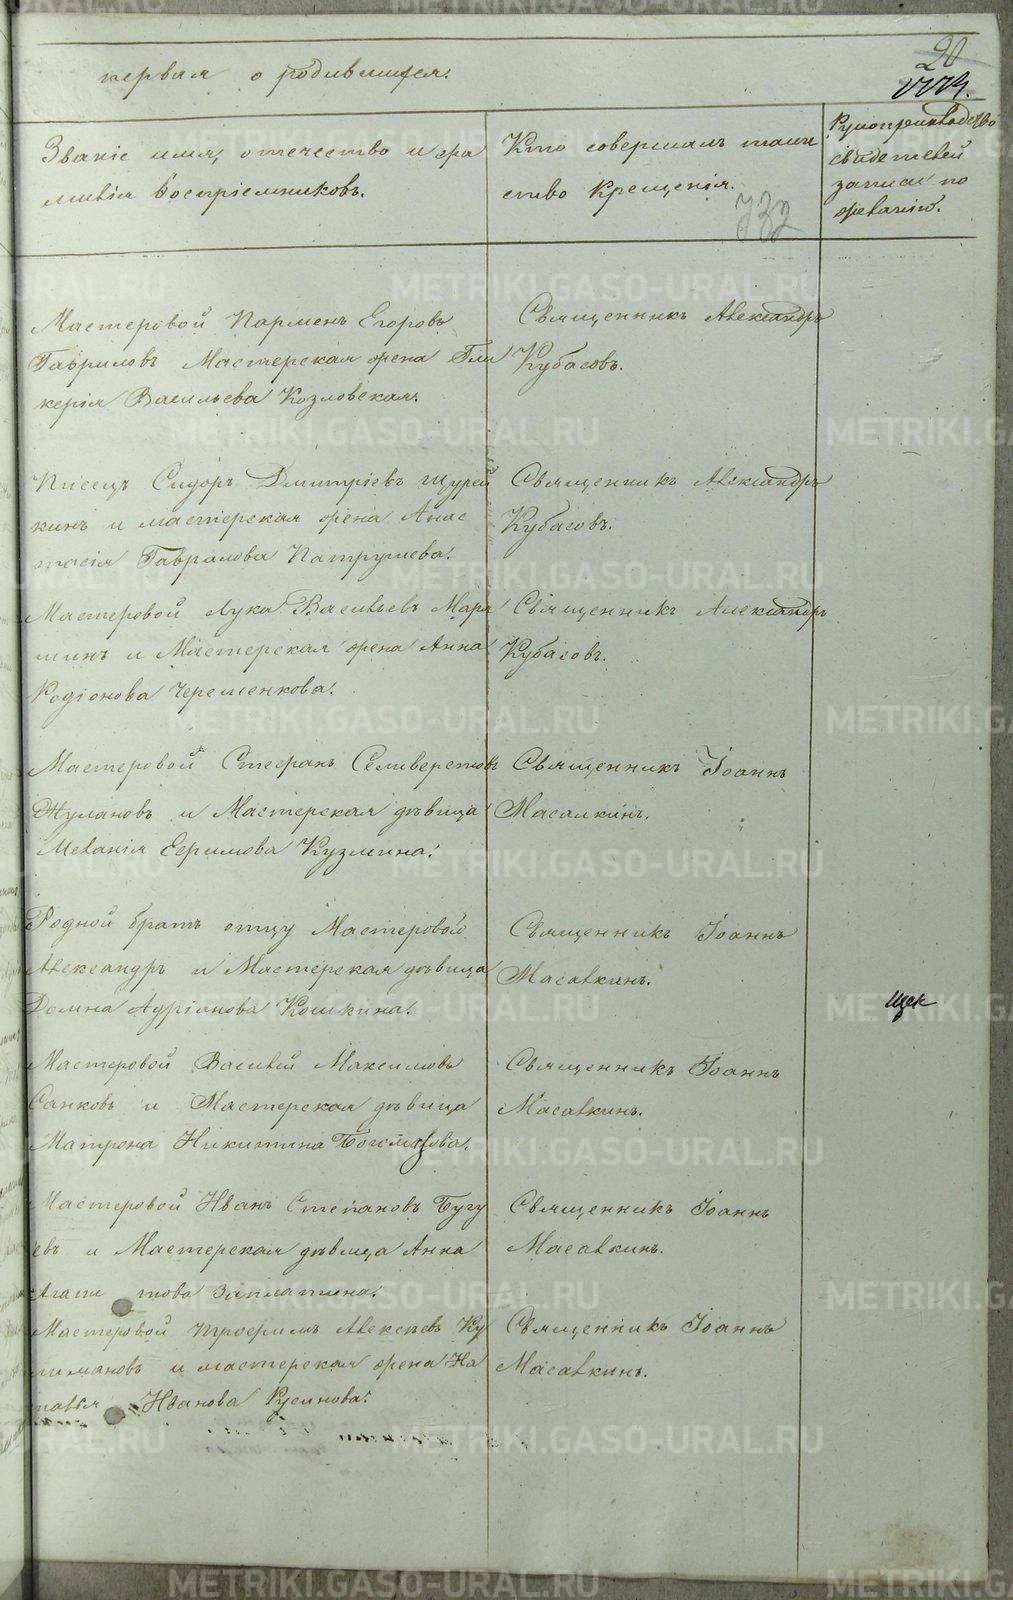 первая о родившихся.
20
Званіе имя, отечество и фа
миліи воспріемниковъ.
Кто совершалъ таин
ство Крещенія.
Рукоприкладство
свидетелей
записи по
желанію.
Мастеровой Парменъ Егоровъ
Гавриловъ Мастерская жена Гли
керія Васильева Козловская.
Священникъ Александръ
Кубасовъ.
Писецъ Сидоръ Дмитріевъ Щурей
кинъ и мастерская жена Анас
тасія Гаврилова Патрушева.
Священникъ Александръ
Кубасовъ.
Мастеровой Лука Васильевъ Маря
шинъ и Мастерская жена Анна
Родіонова Черешенкова.
Священникъ Александръ
Кубасовъ.
Мастеровой Стефанъ Селиверстовъ
Жулановъ и Мастерская дѣвица
Меланія Ефимова Кузмина.
Священникъ Іоаннъ
Масалкинъ.
Родной братъ отцу Мастеровой
Александръ и Мастерская дѣвица
Домна Адріанова Кошкина.
Священникъ Іоаннъ
Масалкинъ.
Мастеровой Василій Максимовъ
Санковъ и Мастерская дѣвица
Матрона Никитина
Священникъ Іоаннъ
Масалкинъ.
Мастеровой Иванъ Степановъ Бугу
евъ и Мастерская дѣвица Анна
Агапитова Заплатина.
Священникъ Іоаннъ
Масалкинъ.
Мастеровой Трофимъ Алексѣевъ Ку
лимановъ и мастерская жена На
талья Иванова Русинова.
Священникъ Іоаннъ
Масалкинъ.
METRIKI.GASO-URAL.RU